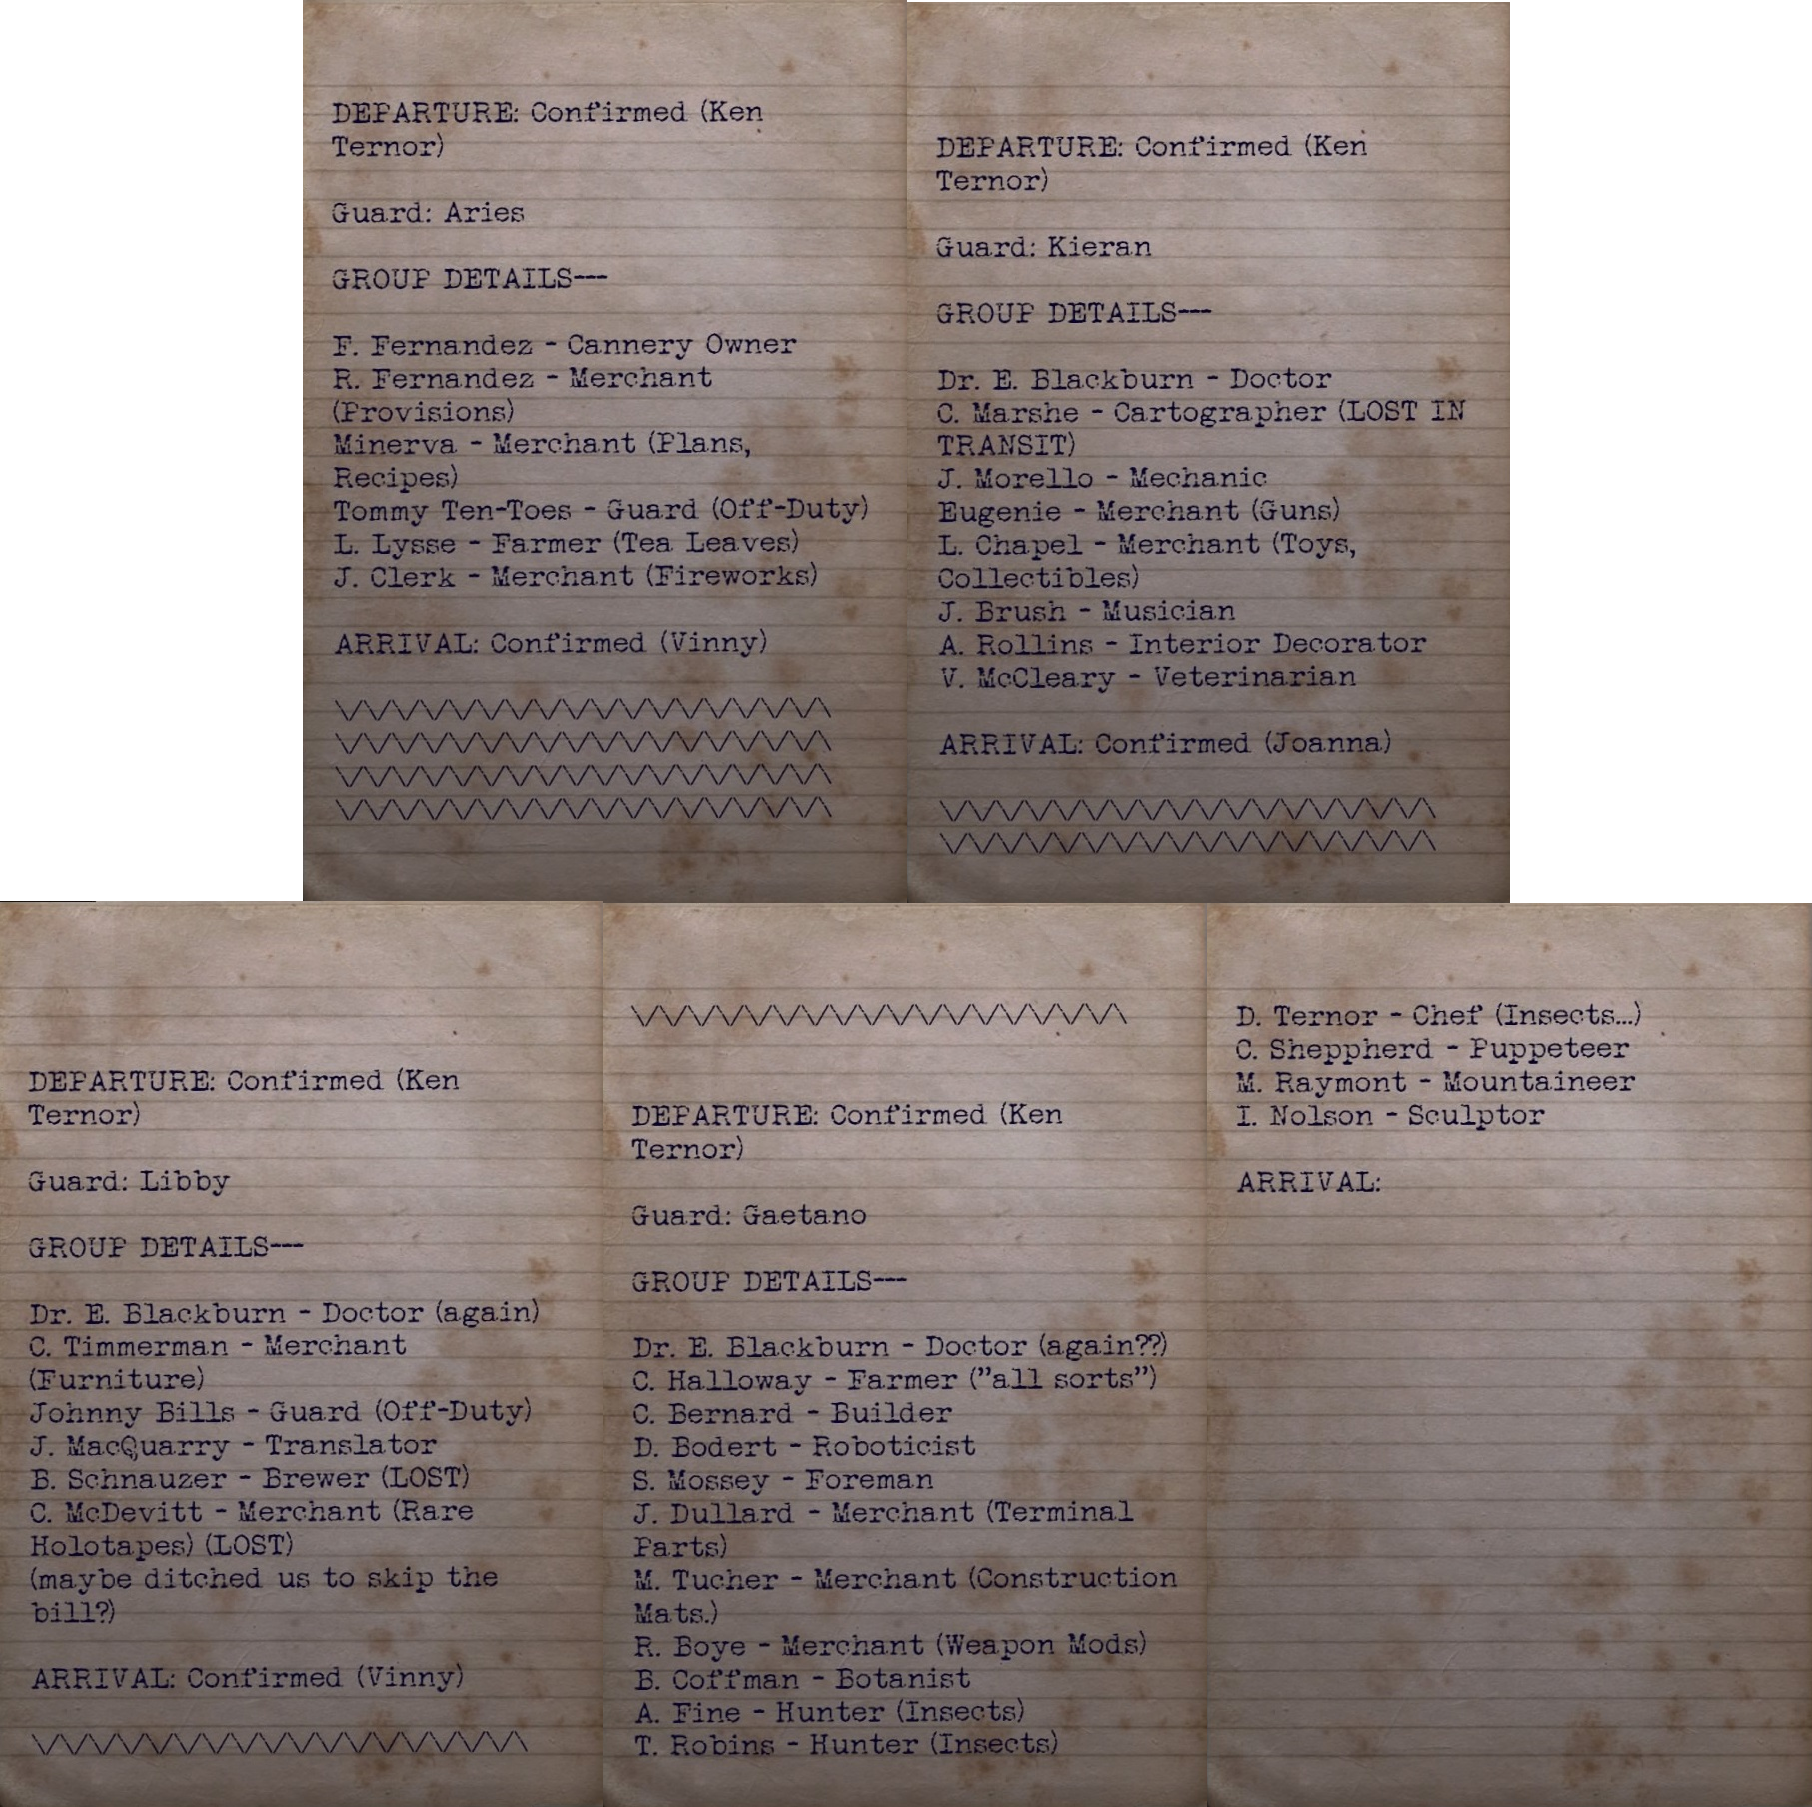 DEPARTURE: Confirmed (Ken
Ternor)
Guard: Aries
GROUP DETAILS---
F. Fernandez - Cannery Owner
R. Fernandez - Merchant
(Provisions)
Minerva - Merchant (Plans,
Recipes)
Tommy Ten-Toes - Guard (Off-Duty)
L. Lysse - Farmer (Tea Leaves)
J. Clerk - Merchant (Fireworks)
ARRIVAL: Confirmed (Vinny)
\/\/\/\/\/\/\/\/\/\/\/\/\/\/\/\/\/\
\/\/\/\/\/\/\/\/\/\/\/\/\/\/\/\/\/\
\/\/\/\/\/\/\/\/\/\/\/\/\/\/\/\/\/\
\/\/\/\/\/\/\/\/\/\/\/\/\/\/\/\/\/\
DEPARTURE: Confirmed (Ken
Ternor)
Guard: Kieran
GROUP DETAILS---
Dr. E. Blackburn - Doctor
C. Marshe - Cartographer (LOST IN
TRANSIT)
J. Morello - Mechanic
Eugenie - Merchant (Guns)
L. Chapel - Merchant (Toys,
Collectibles)
J. Brush - Musician
A. Rollins - Interior Decorator
V. McCleary - Veterinarian
ARRIVAL: Confirmed (Joanna)
\/\/\/\/\/\/\/\/\/\/\/\/\/\/\/\/\/\
\/\/\/\/\/\/\/\/\/\/\/\/\/\/\/\/\/\
DEPARTURE: Confirmed (Ken
Ternor)
Guard: Libby
GROUP DETAILS---
Dr. E. Blackburn - Doctor (again)
C. Timmerman - Merchant
(Furniture)
Johnny Bills - Guard (Off-Duty)
J. MacQuarry - Translator
B. Schnauzer - Brewer (LOST)
C. McDevitt - Merchant (Rare
Holotapes) (LOST)
(maybe ditched us to skip the
bill?)
ARRIVAL: Confirmed (Vinny)
\/\/\/\/\/\/\/\/\/\/\/\/\/\/\/\/\/\
\/\/\/\/\/\/\/\/\/\/\/\/\/\/\/\/\/\
DEPARTURE: Confirmed (Ken
Ternor)
Guard: Gaetano
GROUP DETAILS---
Dr. E. Blackburn - Doctor (again??)
C. Halloway - Farmer ("all sorts")
C. Bernard - Builder
D. Bodert - Roboticist
S. Mossey - Foreman
J. Dullard - Merchant (Terminal
Parts)
M. Tucher - Merchant (Construction
Mats.)
R. Boye - Merchant (Weapon Mods)
B. Coffman - Botanist
A. Fine - Hunter (Insects)
T. Robins - Hunter (Insects)
D. Ternor - Chef (Insects...)
C. Sheppherd - Puppeteer
M. Raymont - Mountaineer
I. Nolson - Sculptor
ARRIVAL: